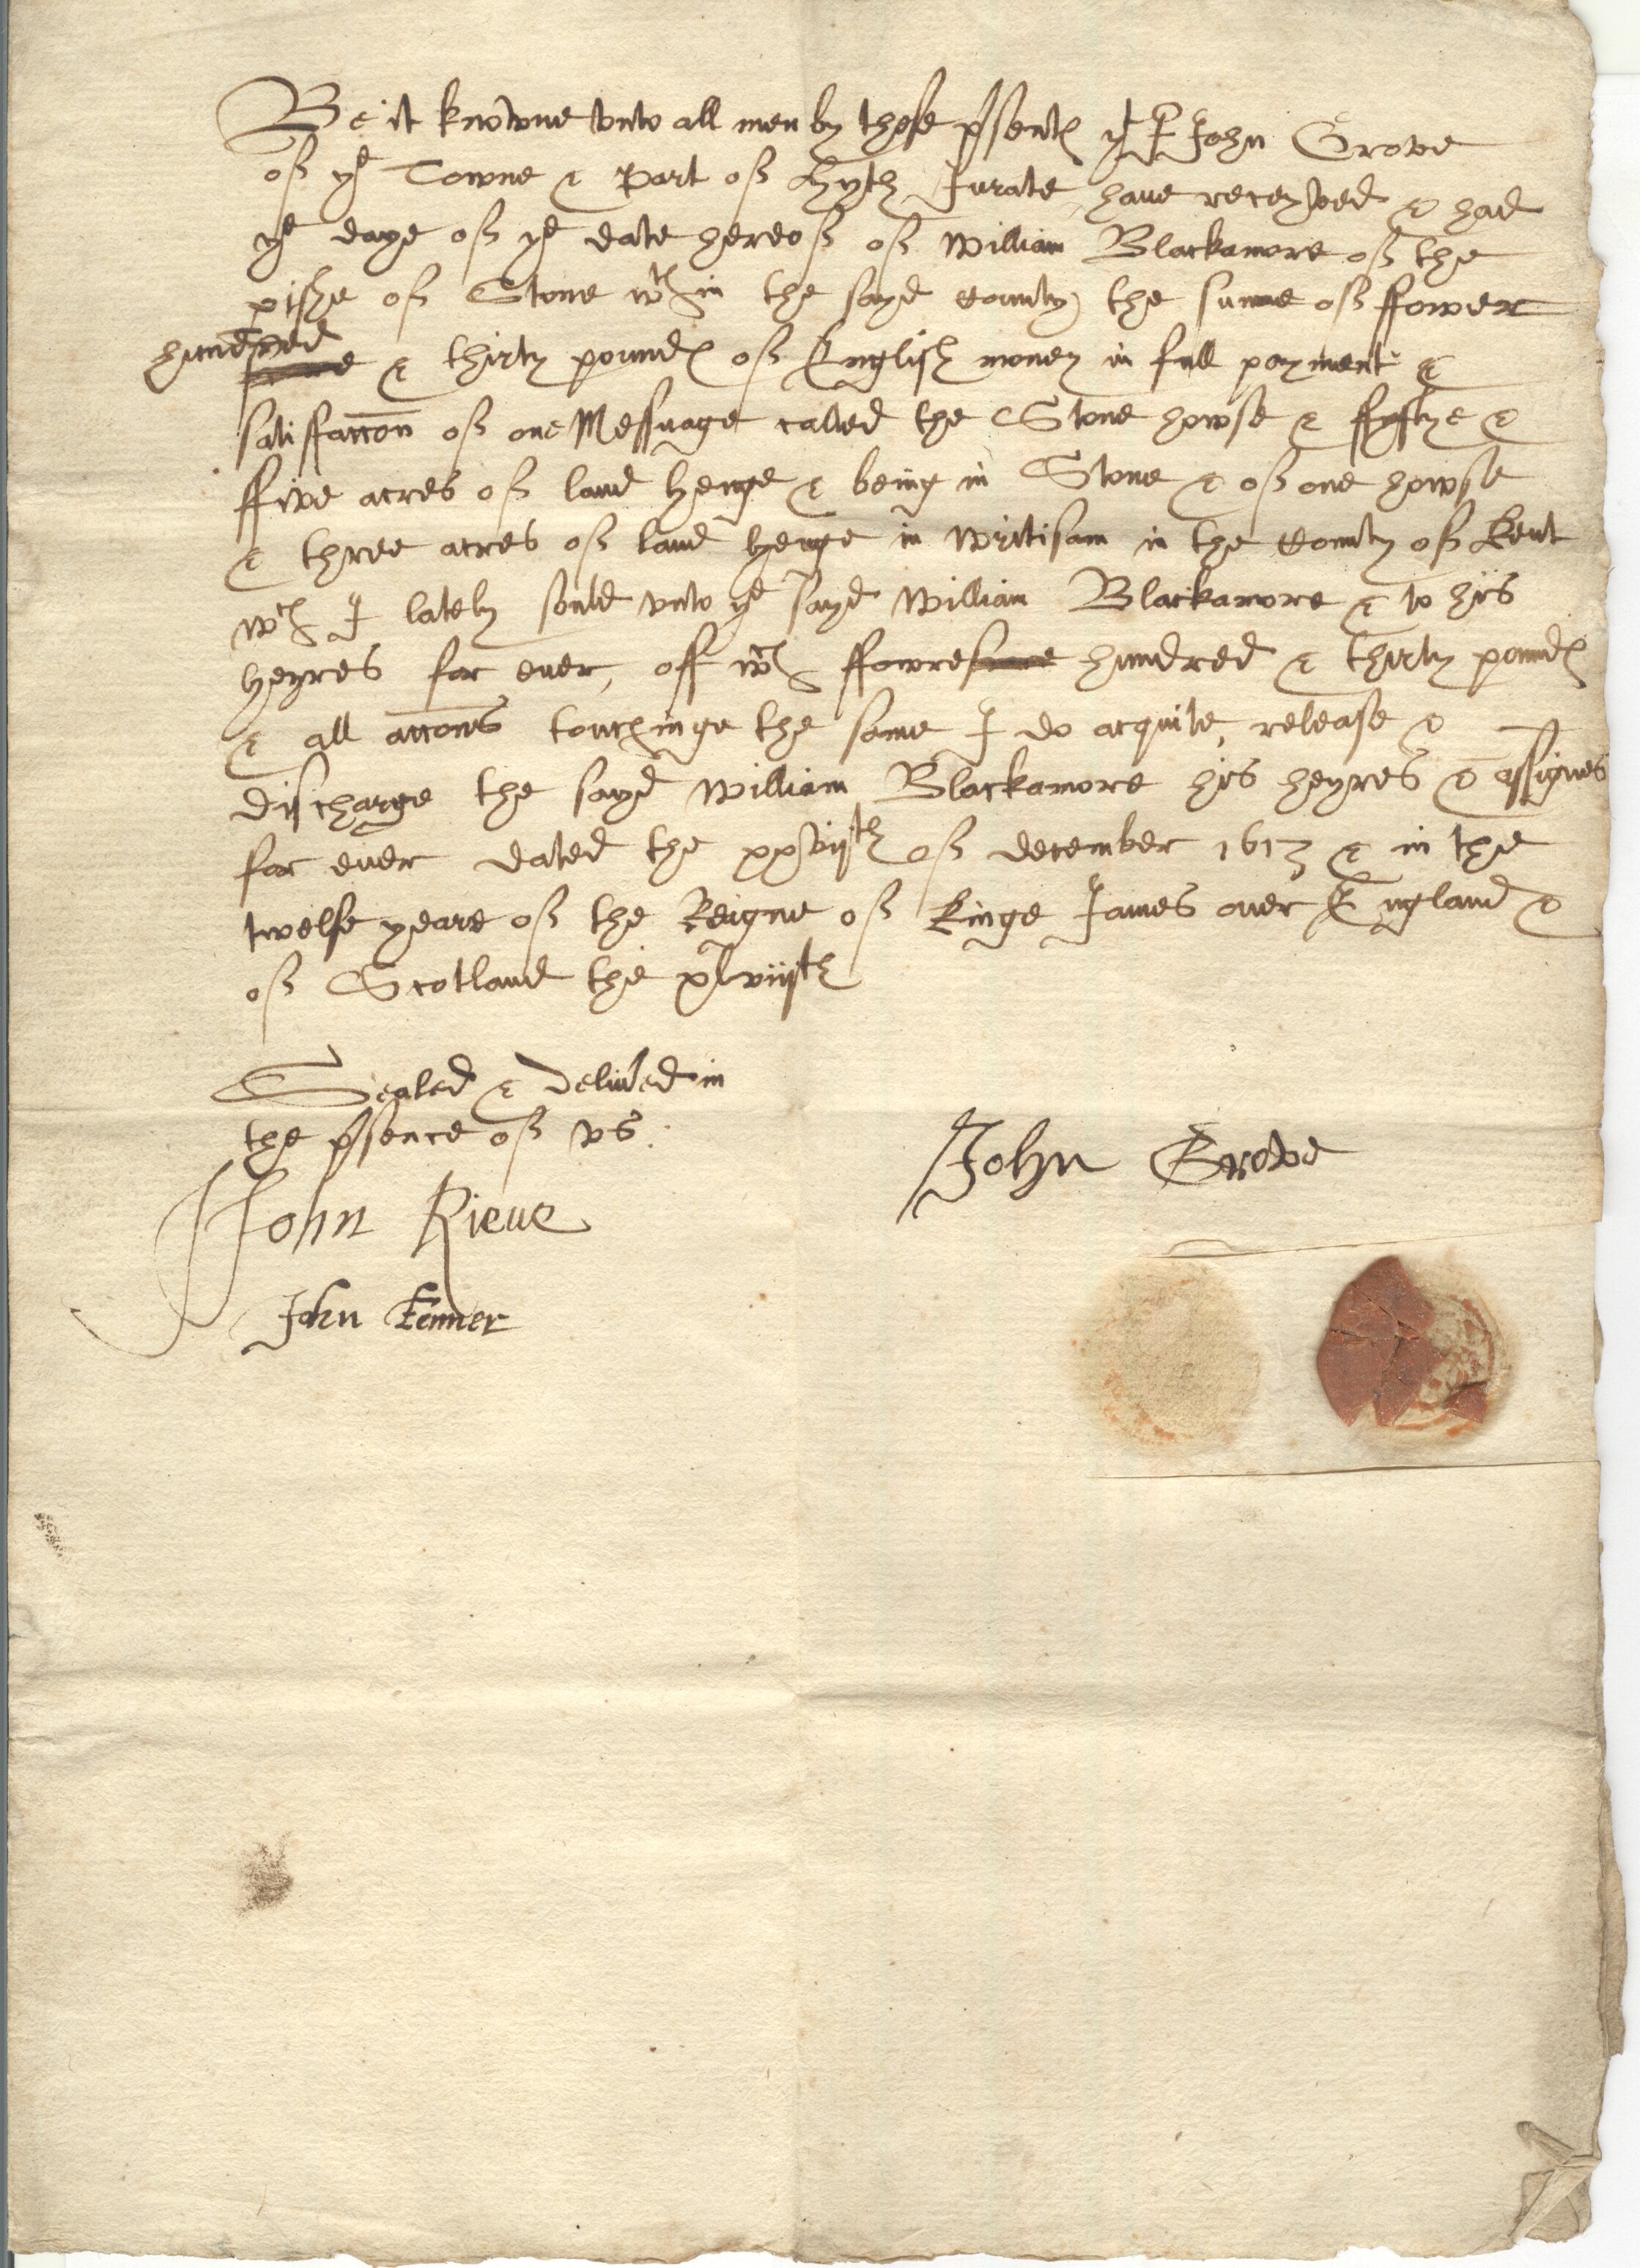 Be it knowne vnto all men by these psent yt I John Grove
of ye Towne & Port of Hyth Jurate, have receyved & had
ye daye of ye date hereof of William Blackamore of the
pishe of Stone wthin the sayd County the sume of ffower
hundred & thirty pounds of English money in full payment &
satisfaccon of one Messuage called the Stone howse & &
ffive acres of land lyenge & being in Stone & of one howse
& three acres of land lyenge in Writisam in the County of Kent
wch I lately sould vnto ye sayd William Blackamore & to his
heyres for ever, off wch ffowre hundred & thirty pounds
& all accons touchinge the same I do acquite, release &
discharge the sayd William Blackamore his heyres & assignes
for ever dated the xxviith of december 1613 & in the
twelfe yeare of the Reigne of Kinge James over England &
of Scotland the xlviijth
Sealed & delived in
the psence of vs.
John Grove
John Rieve
John